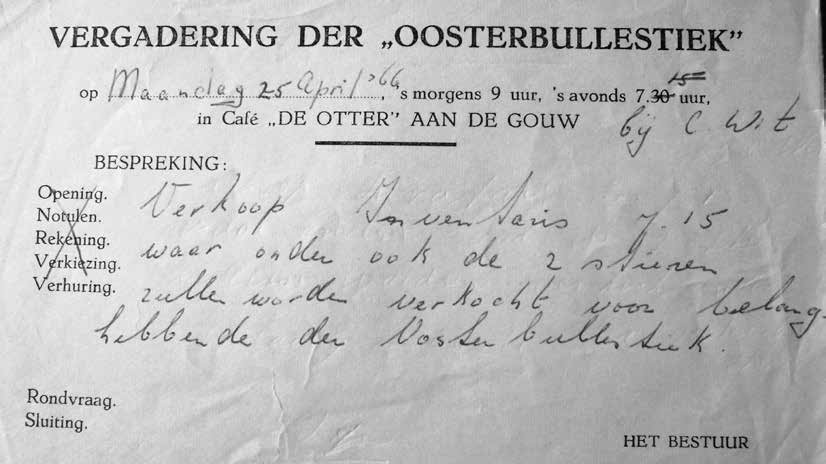 VERGADERING DER „OOSTERBULLESTIEK”
op Maandag 25 April '66, 's morgens 9 uur, 's avonds 7.30 15 uur,
in Café „DE OTTER” AAN DE GOUW bij C. Wit
BESPREKING:
Opening.
Notulen.
Rekening.
Verkiezing.
Verhuring.
Verkoop Inventaris 7.15
waar onder ook de 2 stieren
zullen worden verkocht voor belang-
hebbende der Oosterbullestiek.
Rondvraag.
Sluiting.
HET BESTUUR